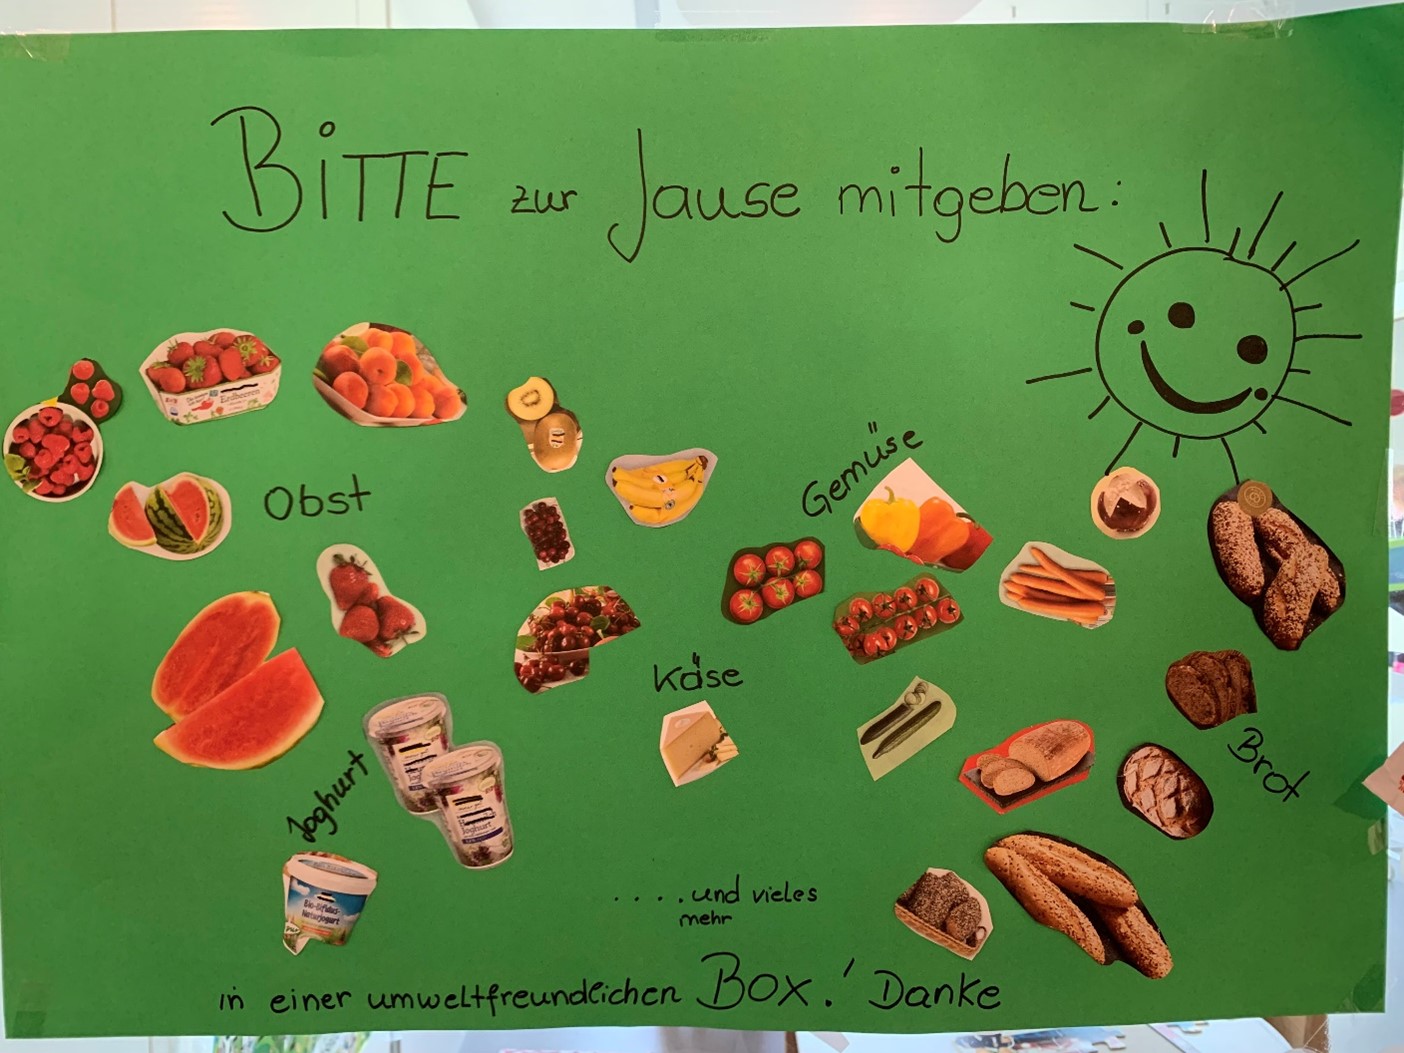 BiTTE zur Jause mitgeben:
Erdbeeren
Obst
Gemüse
Käse
Joghurt
Joghurt
Brot
Bio-Bifidus-
Naturjogurt
.....und vieles
mehr
in einer umweltfreundlichen BOX! Danke